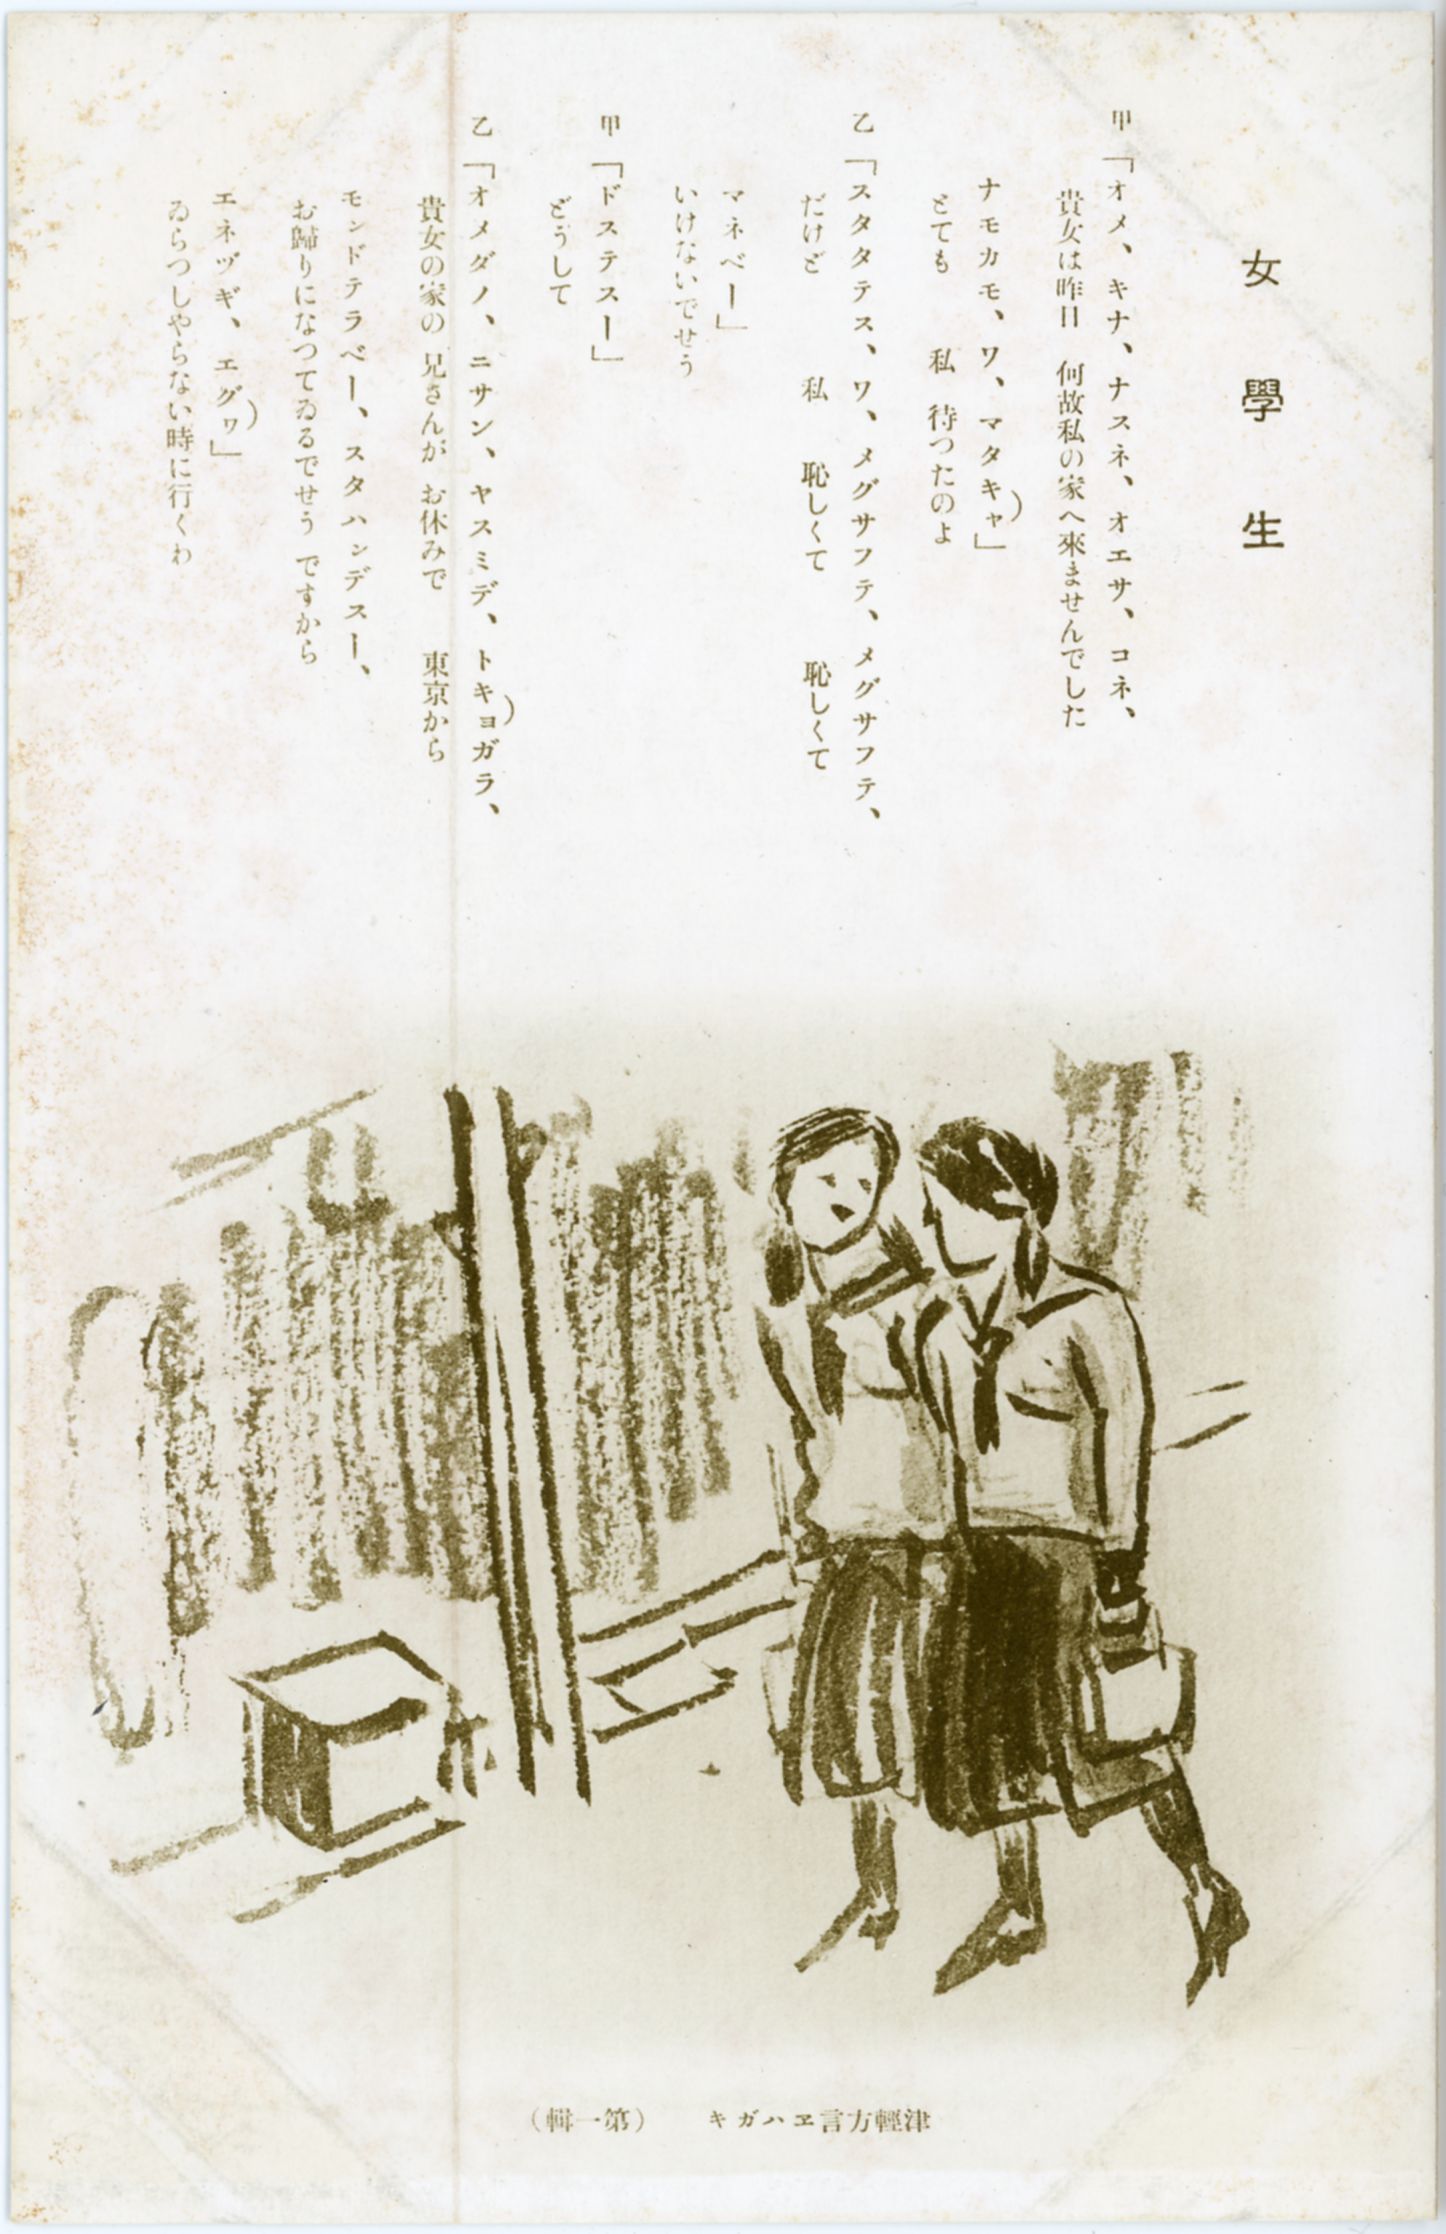 女學生
甲「オメ、キナ、ナスネ、オエサ、コネ、
貴女は昨日 何故私の家へ來ませんでした
ナモカモ、ワ、マタキャ」
とても 私 待つたのよ
乙「スタタテス、ワ、メグサフテ、メグサフテ、
だけど 私 恥しくて 恥しくて
マネベー」
いけないでせう
甲「ドステスー」
どうして
乙「オメダノ、ニサン、ヤスミデ、トキョガラ、
貴女の家の 兄さんが お休みで 東京から
モンドテラベー、スタハンデスー、
お歸りになつてゐるでせう ですから
エネヅギ、エグワ」
ゐらつしやらない時に行くわ
津輕方言ヱハガキ (第一輯)